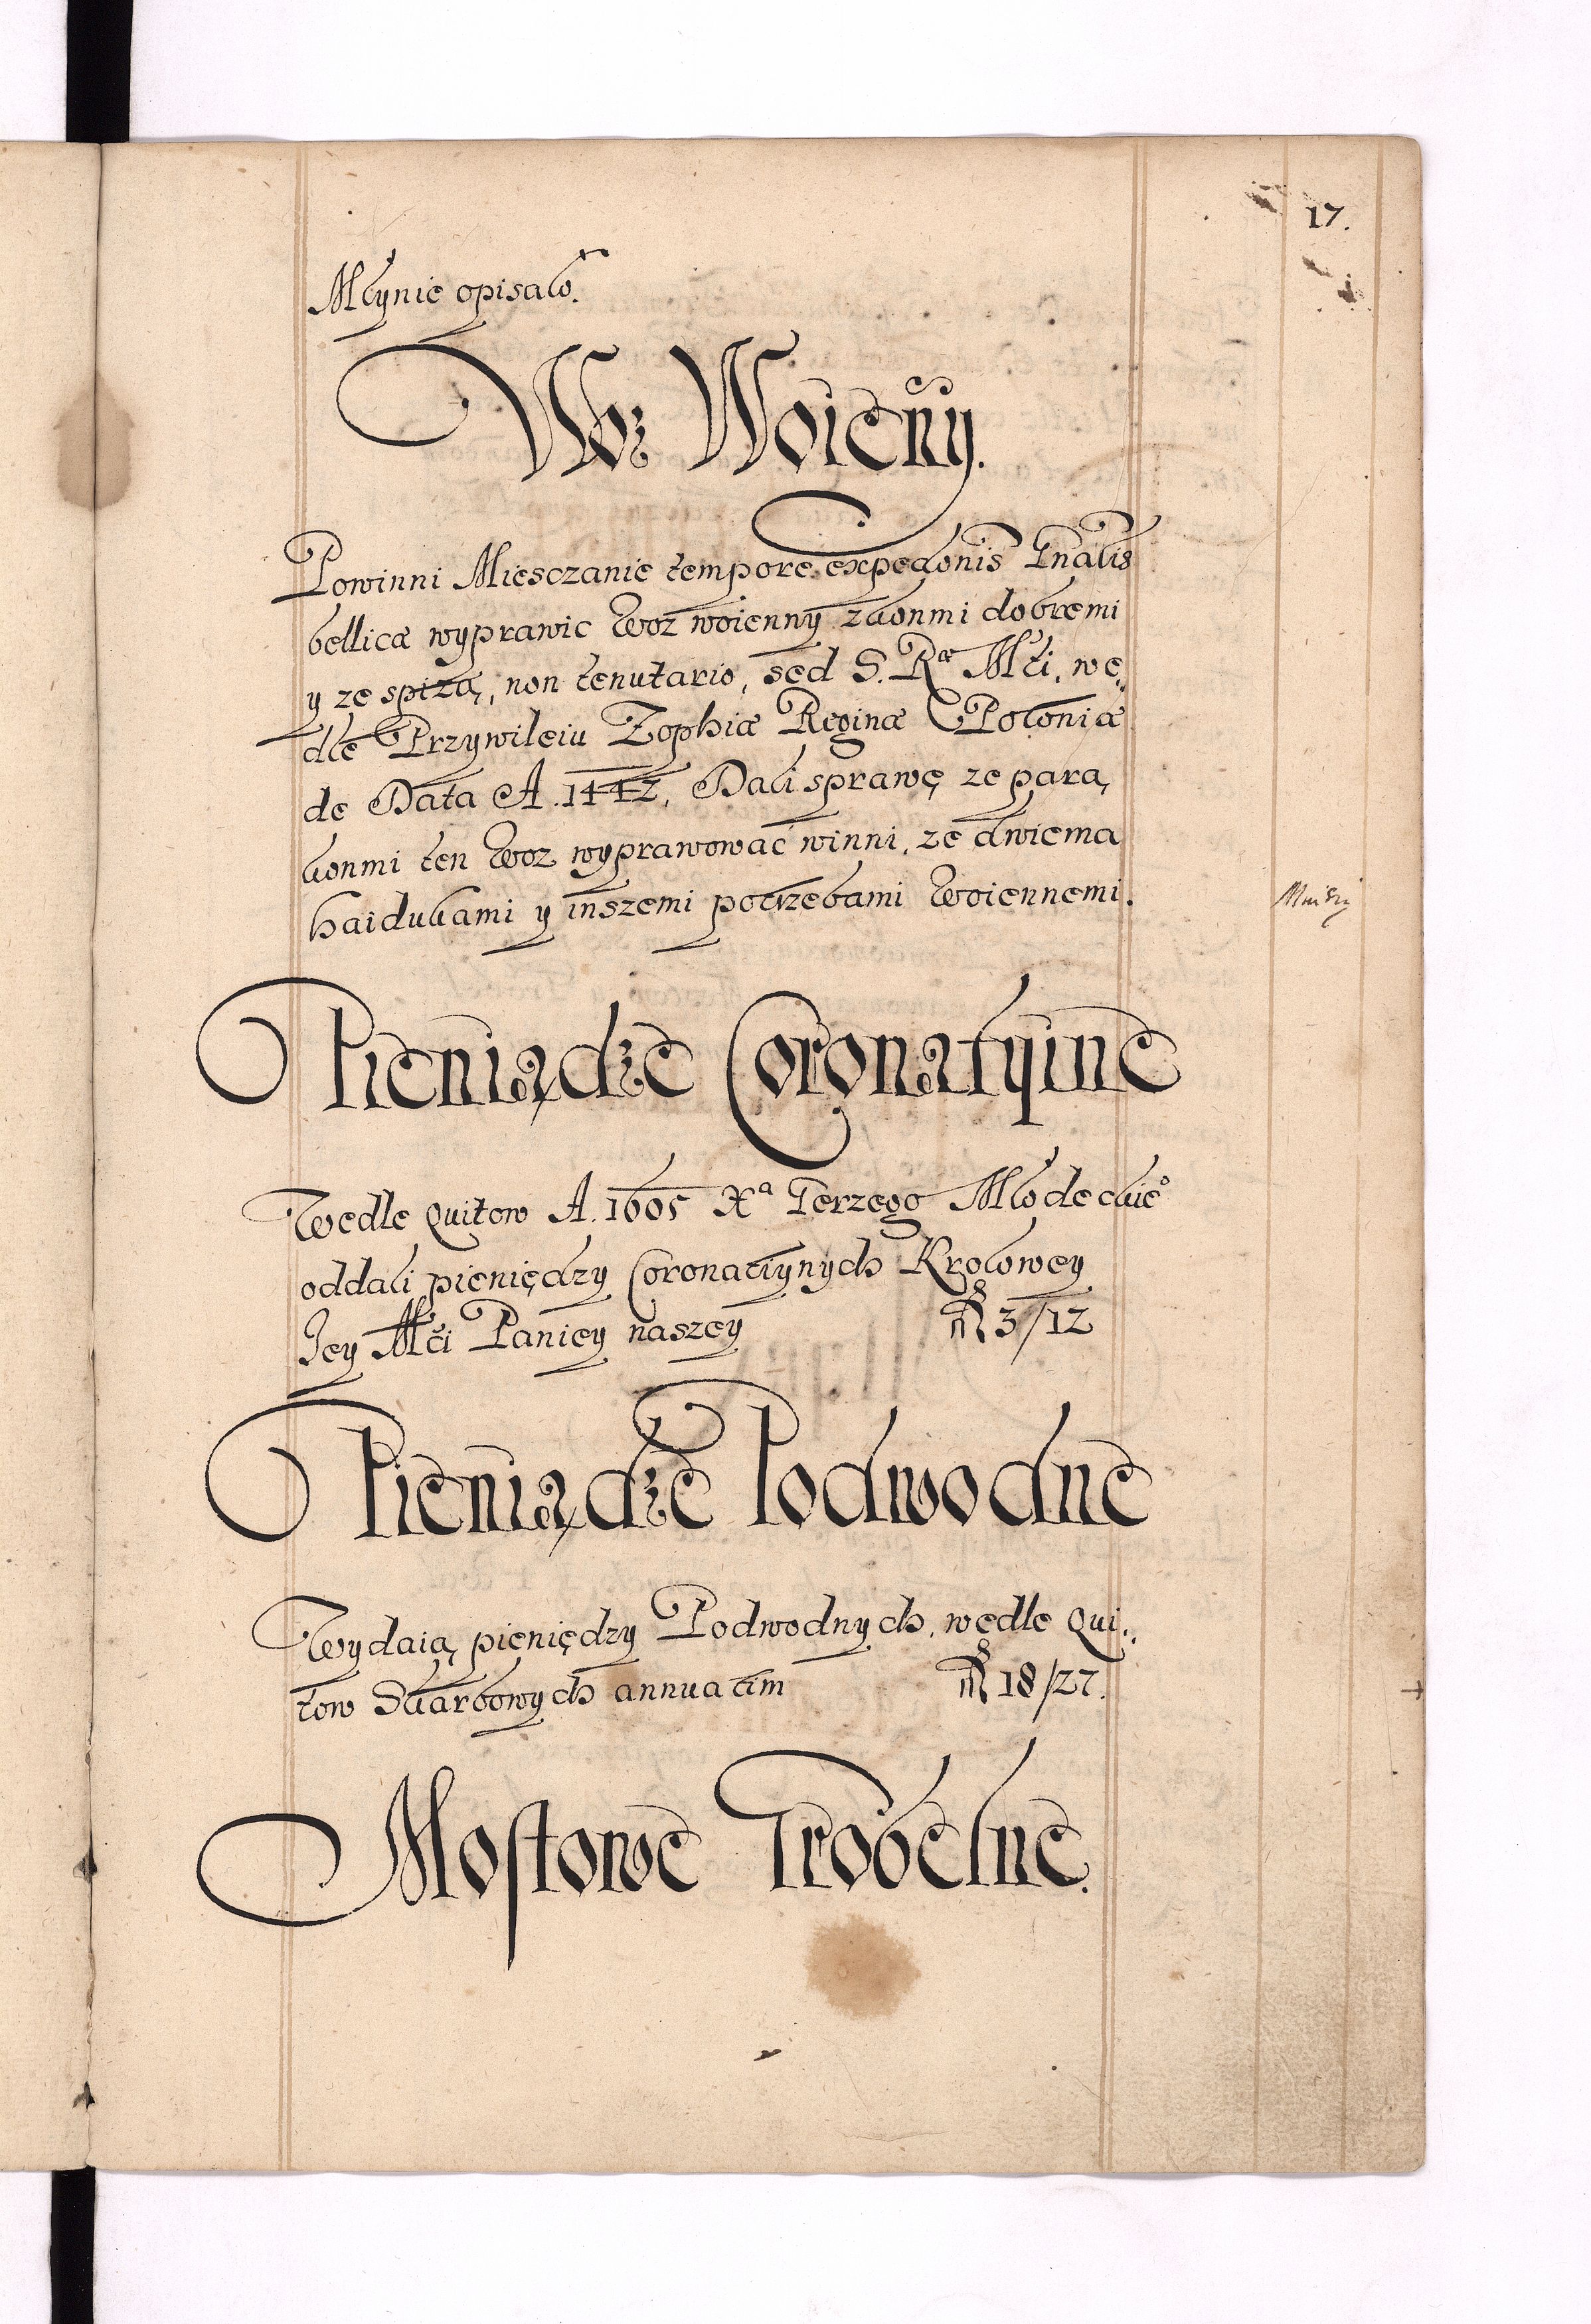 17.
Młynie opisało.
Woz Woienny.
Powinni Miesczanie tempore expedonis Gnalis
bellicæ wyprawic Woz woienny z konmi dobremi
y ze spizą, non tenutario, sed S. Ræ Mći, we
dle Przywileiu Zophiæ Reginæ Poloniæ
de Data A. 1442. Dali sprawę ze parą
konmi ten Woz wyprawować winni, ze dwiema
haidukami y inszemi potrzebami Woiennemi.
Pieniądze Coronatyine
Wedle Quitow A. 1605 Xa Jerzego Młodeckieo
oddali pieniędzy Coronatiynych Krolowey
Jey Mći Paniey naszey 3/12
Pieniądze Podwodne
Wydaią pieniędzy Podwodnych, wedle Qui
tow Skarbowych annuatim 18/27.
Mostowe Grobelne.